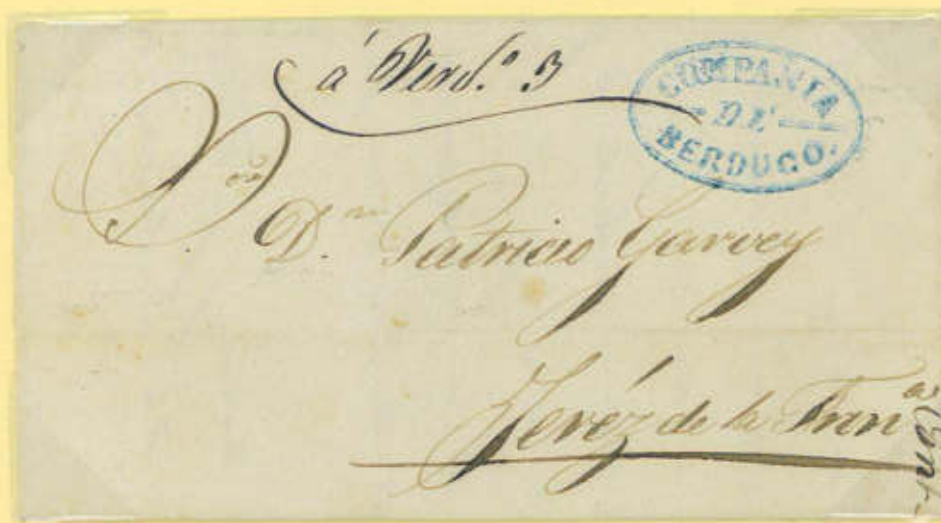 á Verd.º 3
COMPAÑIA
DE
BERDUGO.
Sor
D.n Patricio Garvey
Jeréz de la Fran.a